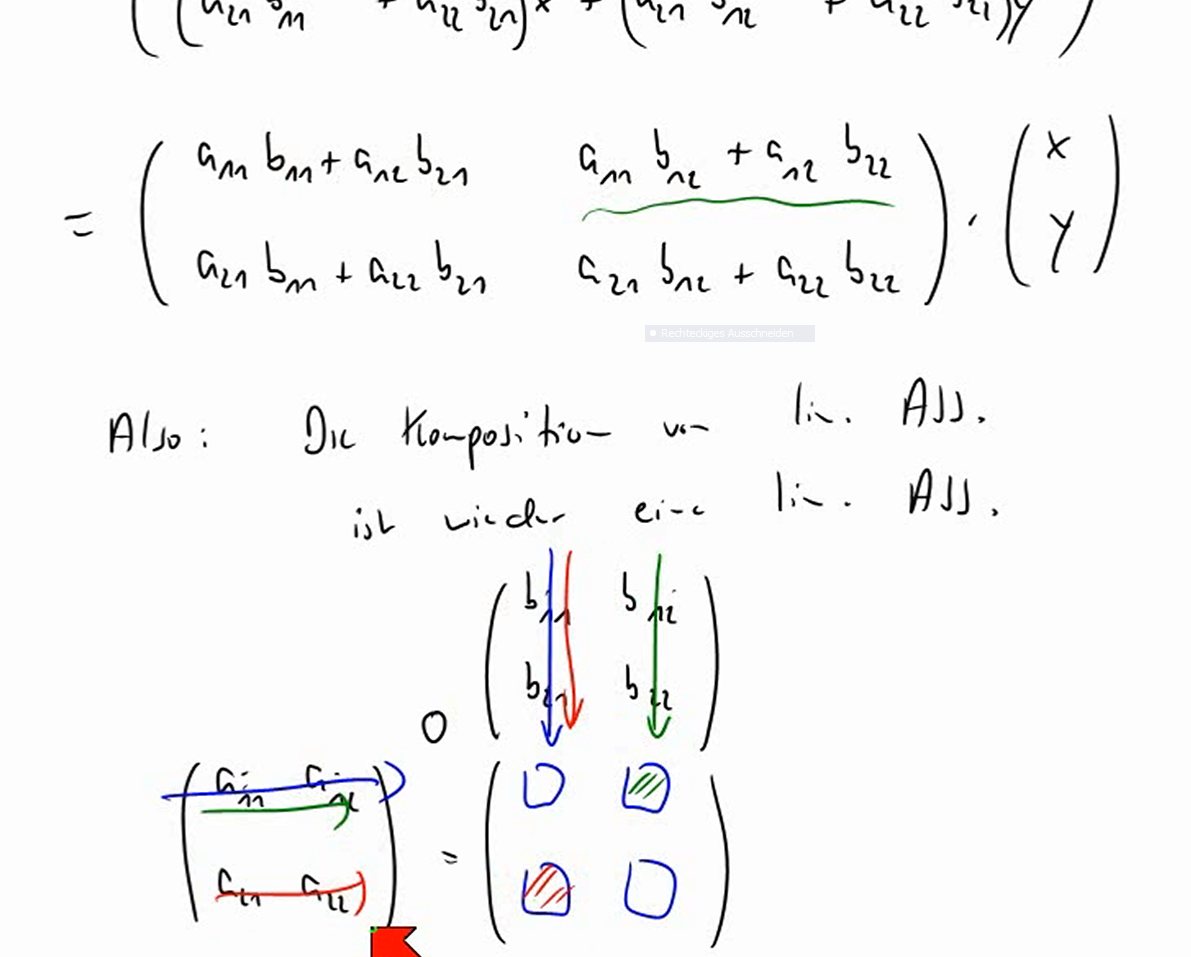 ( (a₂₁ b₁₁ + a₂₂ b₂₁)x + (a₂₁ b₁₂ + a₂₂ b₂₂)y )
= ( a₁₁ b₁₁ + a₁₂ b₂₁   a₁₁ b₁₂ + a₁₂ b₂₂ ) · ( x )
( a₂₁ b₁₁ + a₂₂ b₂₁   a₂₁ b₁₂ + a₂₂ b₂₂ ) ( y )
Rechteckiges Ausschneiden
Also: Die Komposition von lin. Abb.
ist wieder eine lin. Abb.
( b₁₁ b₁₂ )
( b₂₁ b₂₂ )
o
( a₁₁ a₁₂ )
=
( a₂₁ a₂₂ )